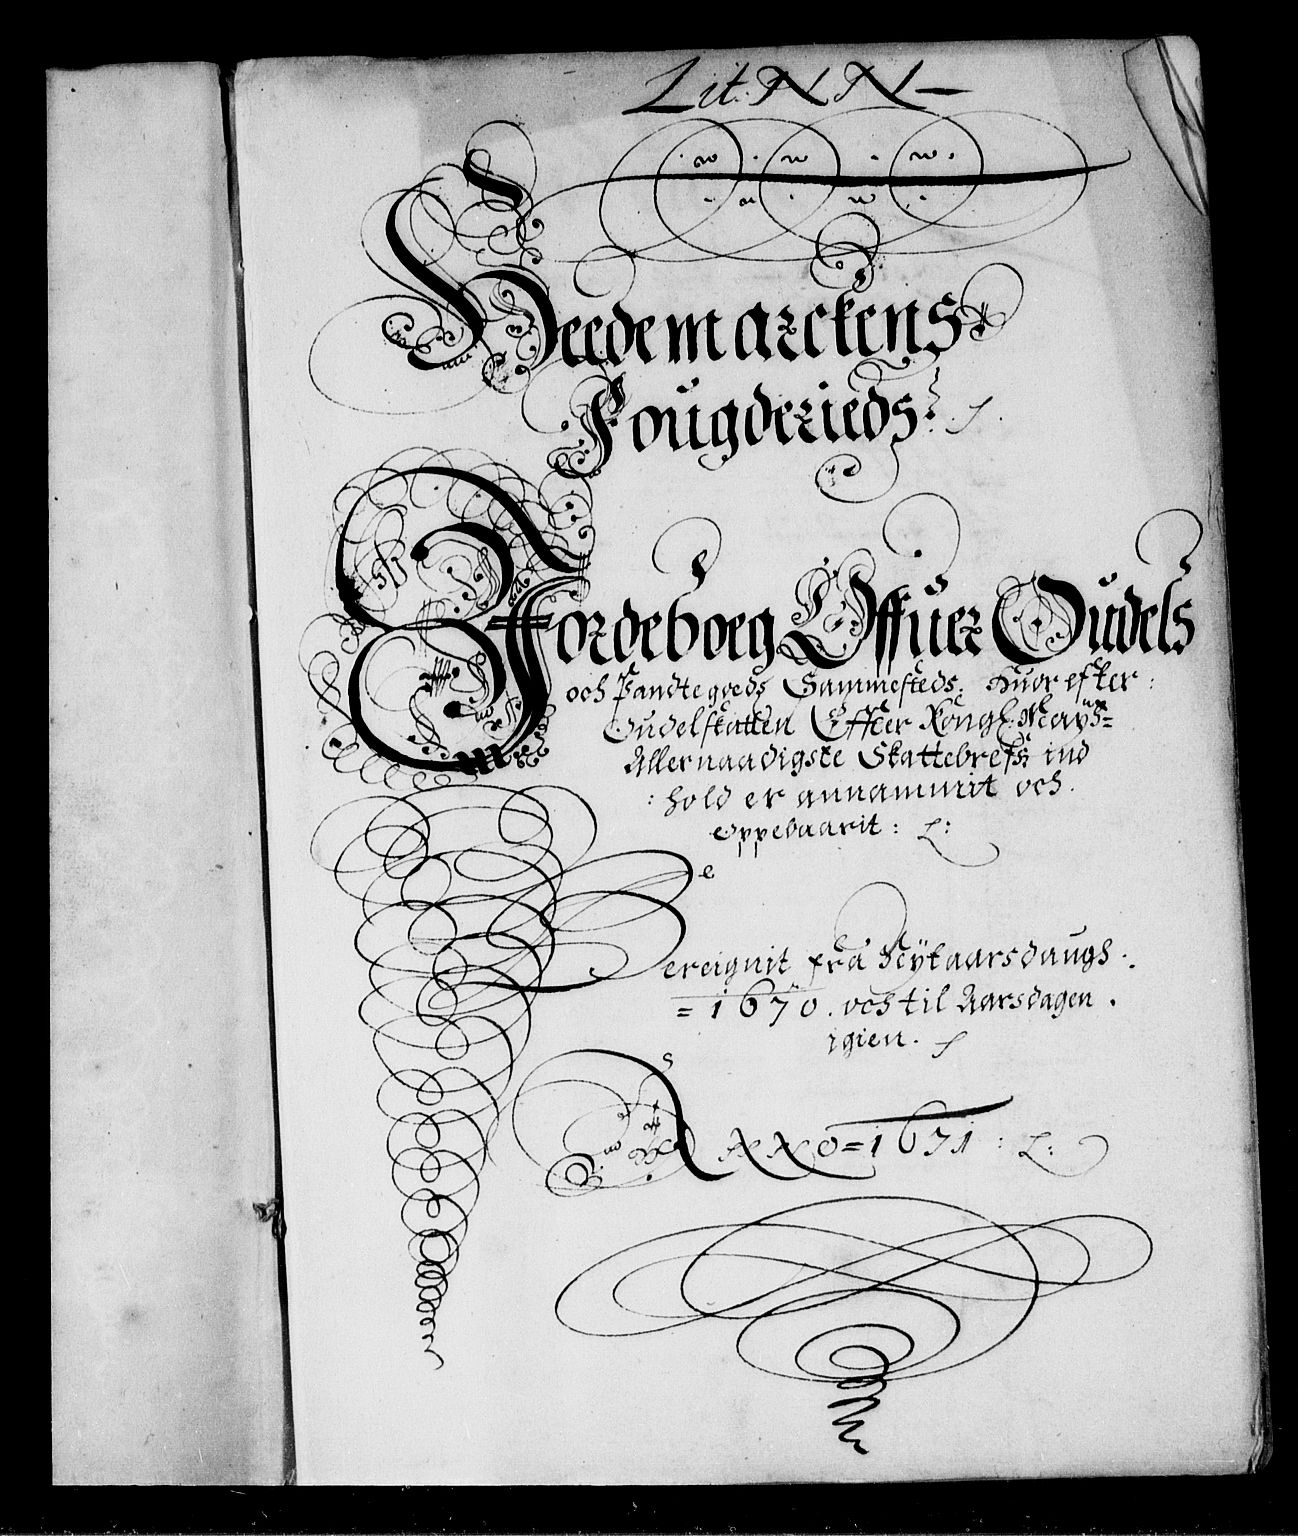 Lit. N N
Heedemarckens
Fougderieds
Jordeboeg Offuer Oudels
och Pandtegoeds Sammesteds, Huorefter
Oudelskatten Effter Kongl: Mayts
Allernaadigste Skattebrefs ind
hold er annammit och
Oppebaarit :
Bereignit fra Nytaarsdaugs
1670. och til Aarsdagen
igien.
ANNO = 1671 :